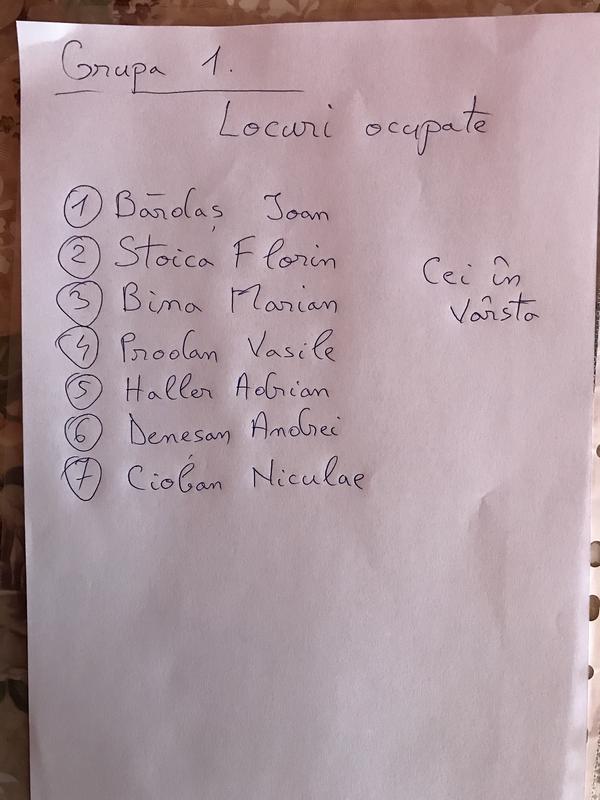 Grupa 1.
Locuri ocupate
1 Bărdaș Ioan
2 Stoica Florin
3 Bina Marian
4 Prodan Vasile
5 Haller Adrian
6 Denesan Andrei
7 Cioban Niculae
Cei în
Vârsta